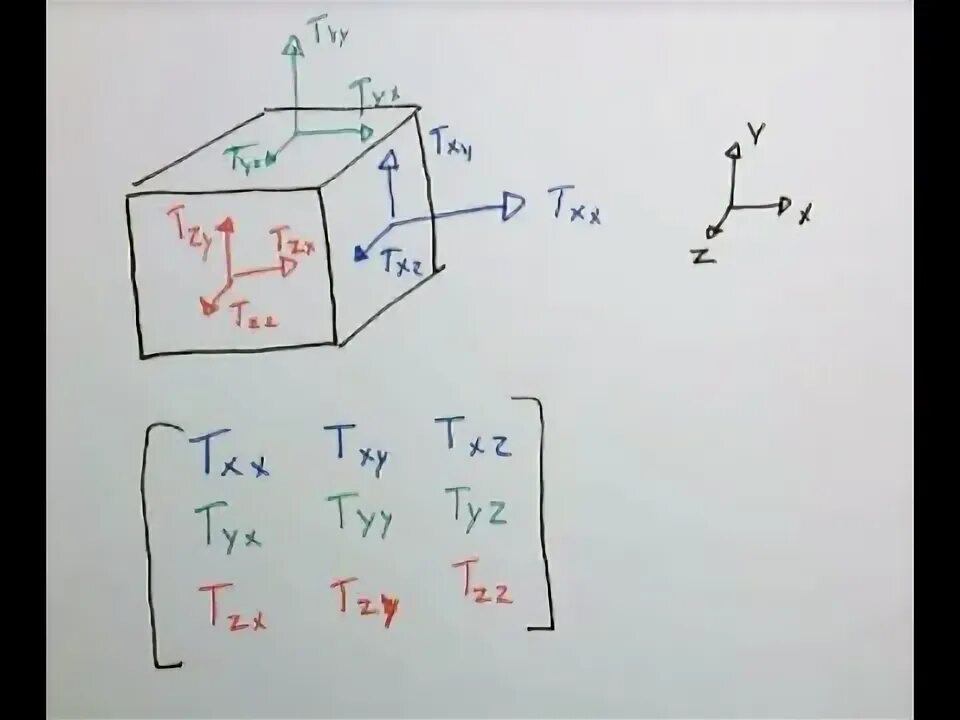 Tyy
Tyx
Tyz
Txy
Txx
Txz
Tzy
Tzx
Tzz
Y
X
Z
Txx Txy Txz
Tyx Tyy Tyz
Tzx Tzy Tzz